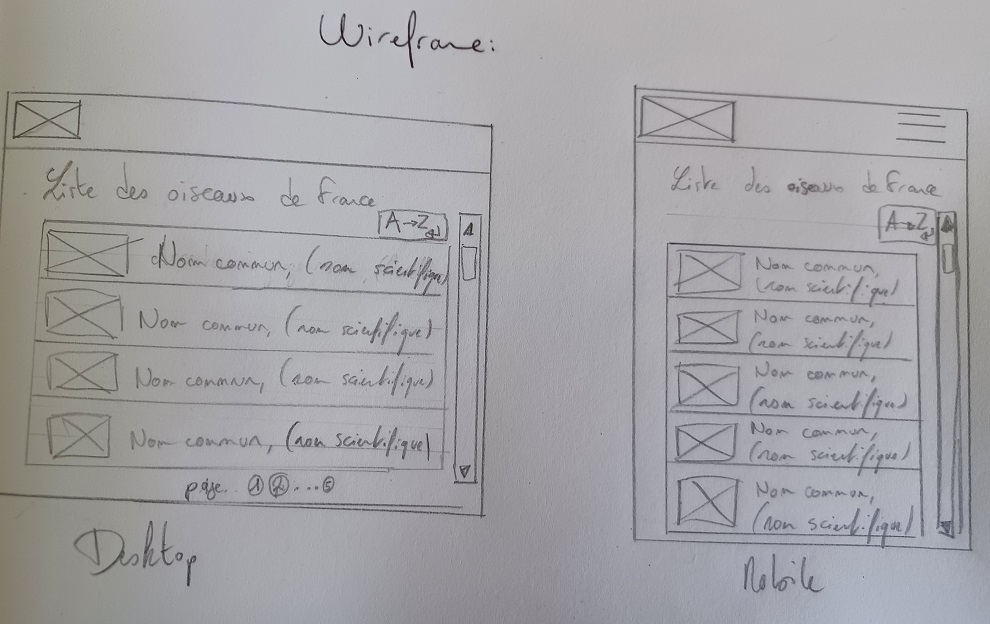 Wireframe:
Liste des oiseaux de France
A→Z
Nom commun, (nom scientifique)
Nom commun, (nom scientifique)
Nom commun, (nom scientifique)
Nom commun, (nom scientifique)
page.. 1 2 ... 5
Desktop
Liste des oiseaux de France
A→Z
Nom commun,
(nom scientifique)
Nom commun,
(nom scientifique)
Nom commun,
(nom scientifique)
Nom commun,
(nom scientifique)
Nom commun,
(nom scientifique)
Mobile